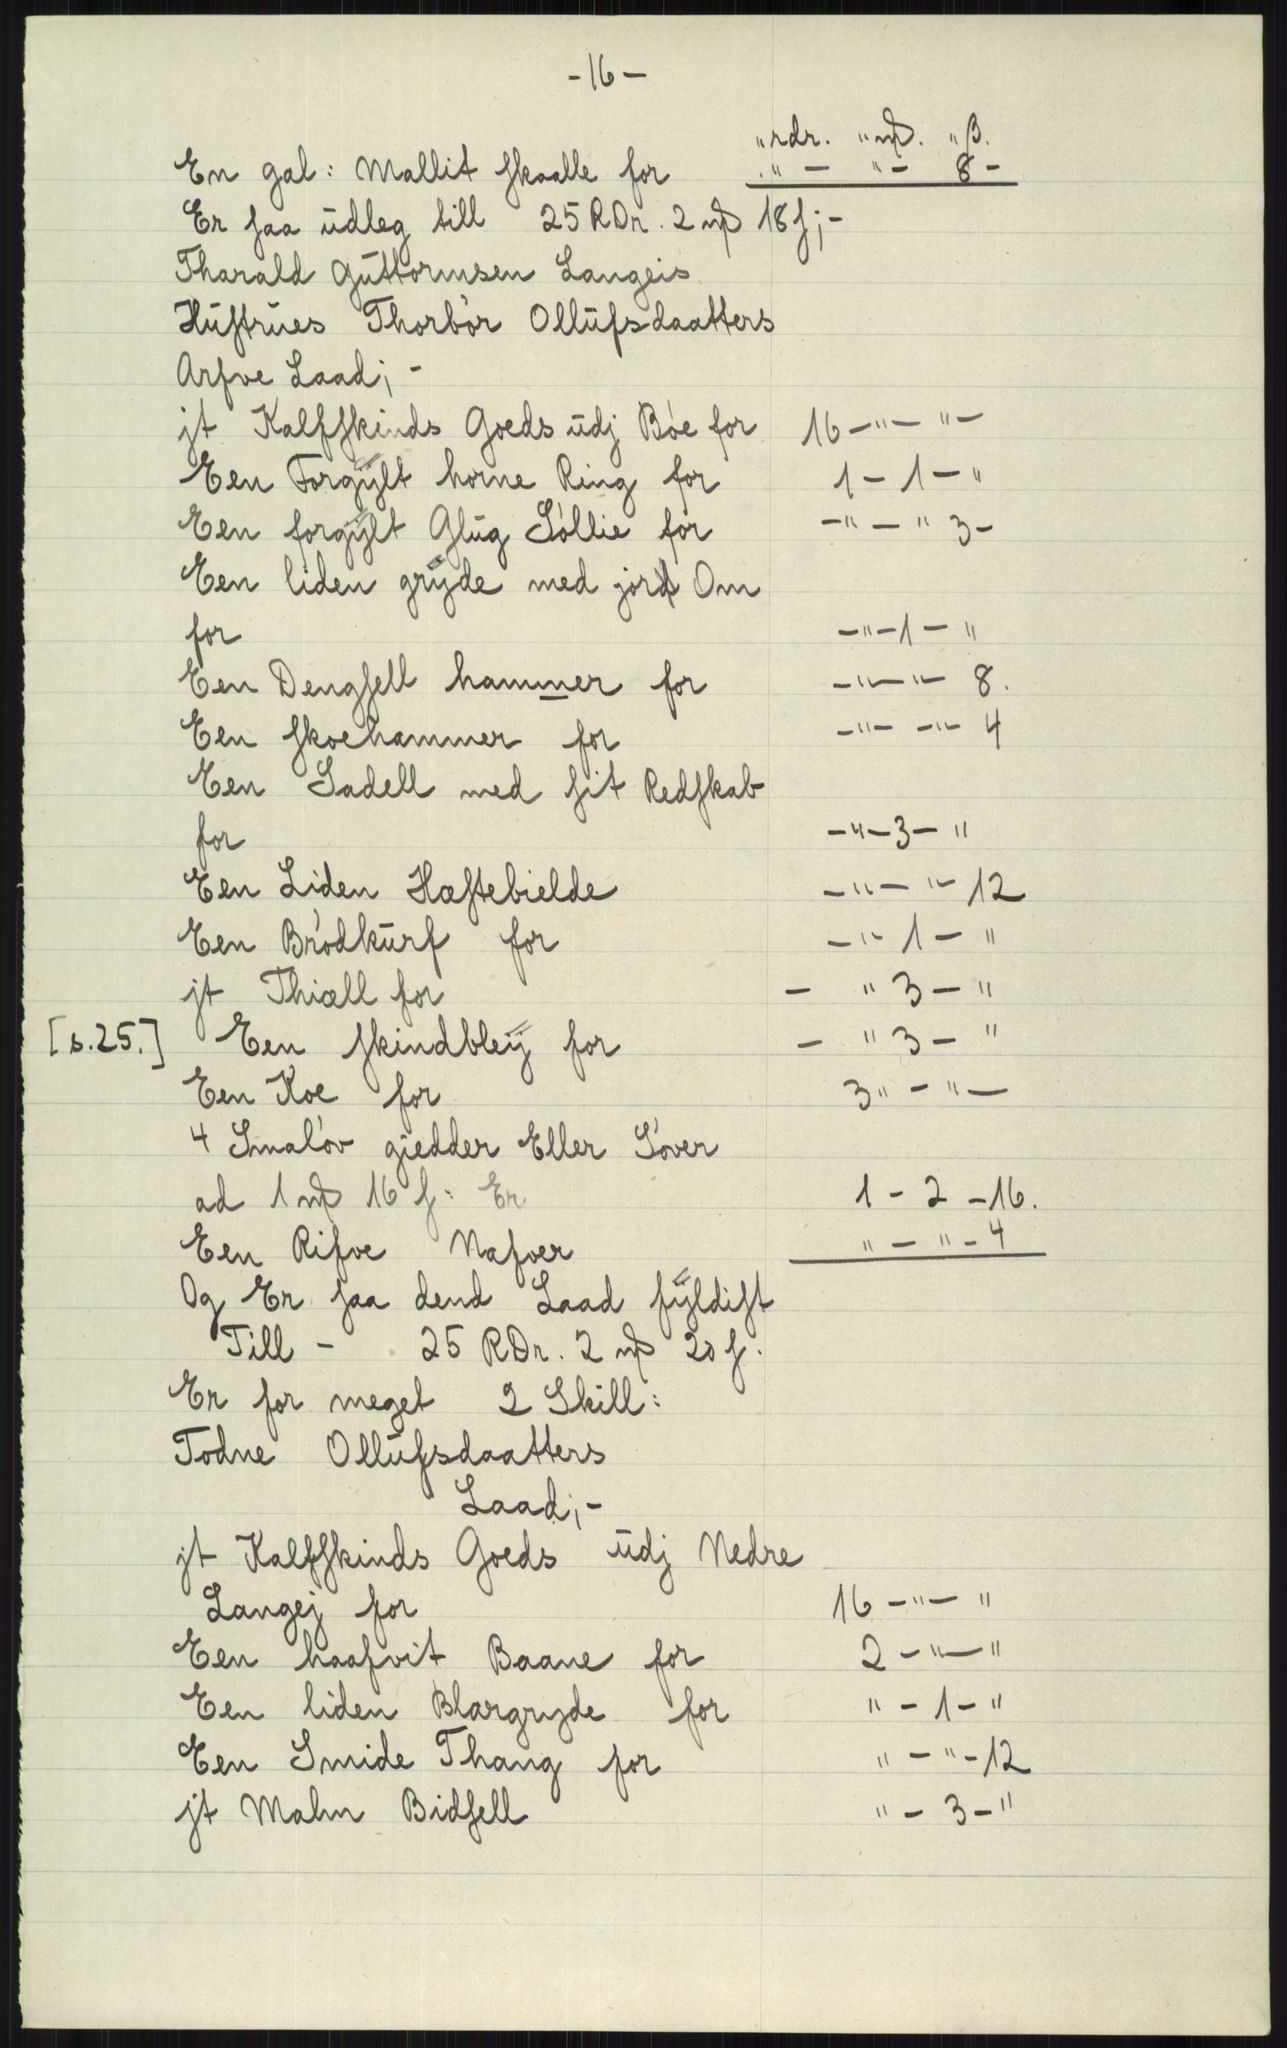 -16-
"rdr. "mƒ. "β.
En gal: Mallit skaalle for "- "- 8-
Er saa ūdleg till 25 RDr. 2 mƒ 18 s;-
Tharald Gūttormsen Langeis
Hūstrūes Thorbór Ollūfsdaatters
Arfve Laad;-
jt Kalfskinds Goeds ūdj Bóe for 16-"-"-
Een Forgÿlt horne Ring for 1-1-"
Een forgÿlt Glūg Sóllie for -"-" 3-
Een liden grÿde med jord Om
for -"-1-"
Een Dengsell hammer for -"-"- 8.
Een skoehammer for -"- -"- 4
Een Sadell med sit Redskab
for -"-3-"
Een Liden Hæstebielde -"-"-12
Een Bródkūrf for -"- 1-"
jt Thiæll for - " 3-"
[s.25.] Een skindbleÿ for - " 3-"
Een Koe for 3"-"-
4 Smalóv giedder Eller Sóver
ad 1 mƒ 16 s: Er 1-2-16.
Een Rifve Nafver "-"-4
Og Er saa dend Laad fÿldist
Till - 25 RDr. 2 mƒ 20 s.
Er for meget 2 Skill:
Todne Ollūfsdaatters
Laad;-
jt Kalfskinds Goeds ūdj Nedre
Langej for 16-"-"
Een haafvit Baane for 2-"-"
Een liden Blargryde for "-1-"
Een Smide Thang for "-"-12
jt Maln Bidsell "-3-"